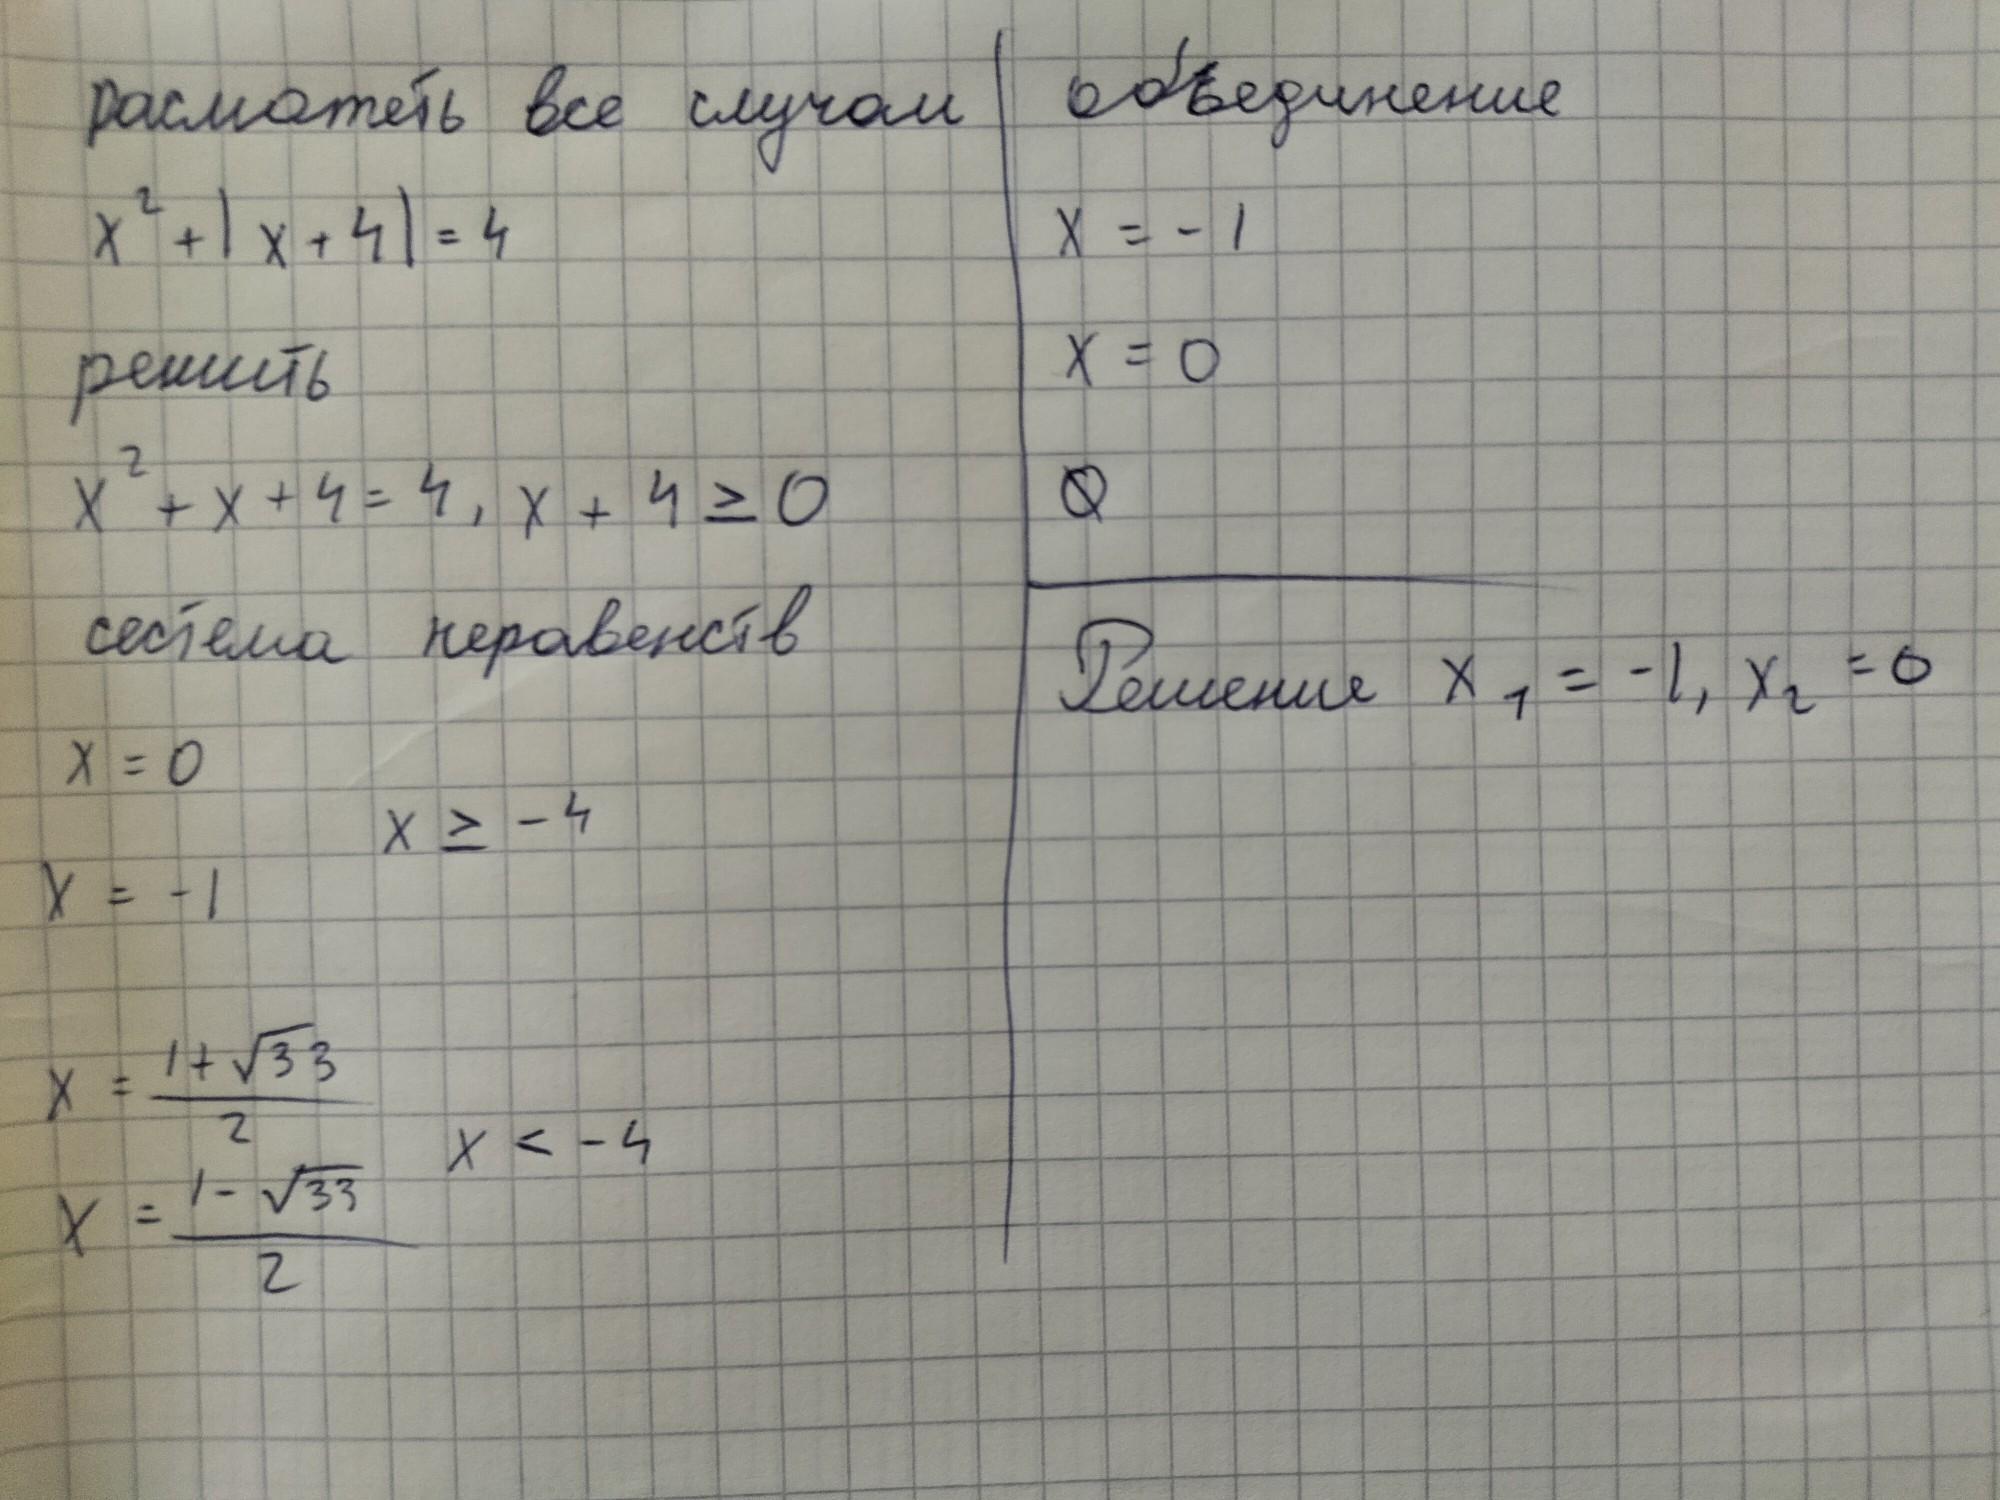 расматеть все случаи
x² + |x + 4| = 4
решить
x² + x + 4 = 4, x + 4 ≥ 0
сестема неравенств
x = 0
x ≥ -4
x = -1
x = (1 + √33)/2
x < -4
x = (1 - √33)/2
объединение
x = -1
x = 0
Ø
Решение x₁ = -1, x₂ = 0